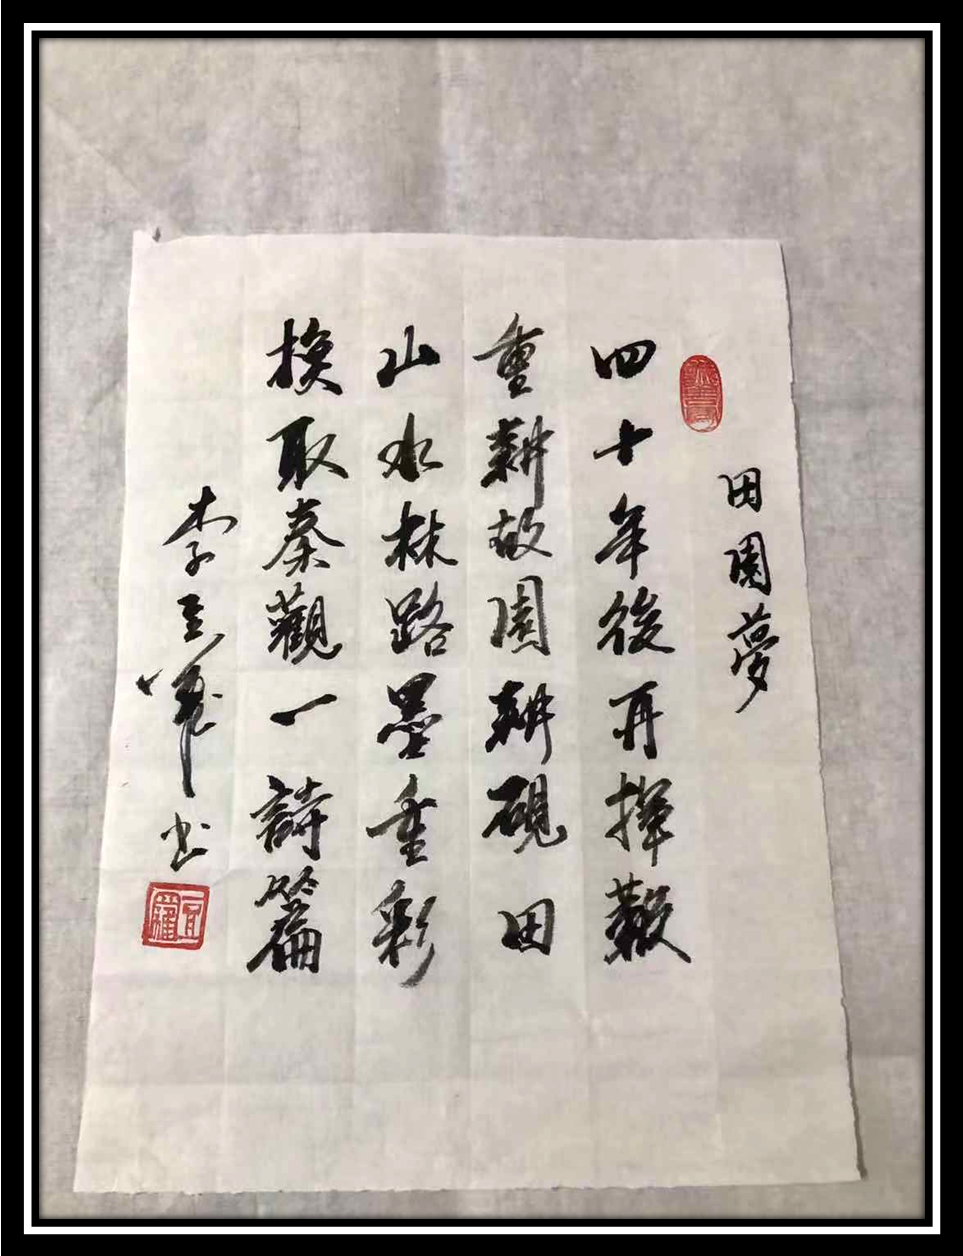 田園夢
四十年後再揮
重耕故園耕硯田
山水林路墨重彩
換取秦觀一詩篇
李 书